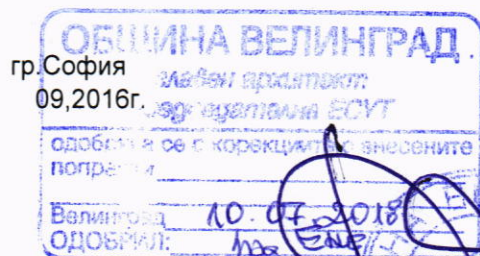 ОБЩИНА ВЕЛИНГРАД
гр.София
Главен архитект:
09,2016г.
ЕСУТ
одобрява се с корекциите внесените
поправки
Велинград 10.07.2018
ОДОБРИЛ: